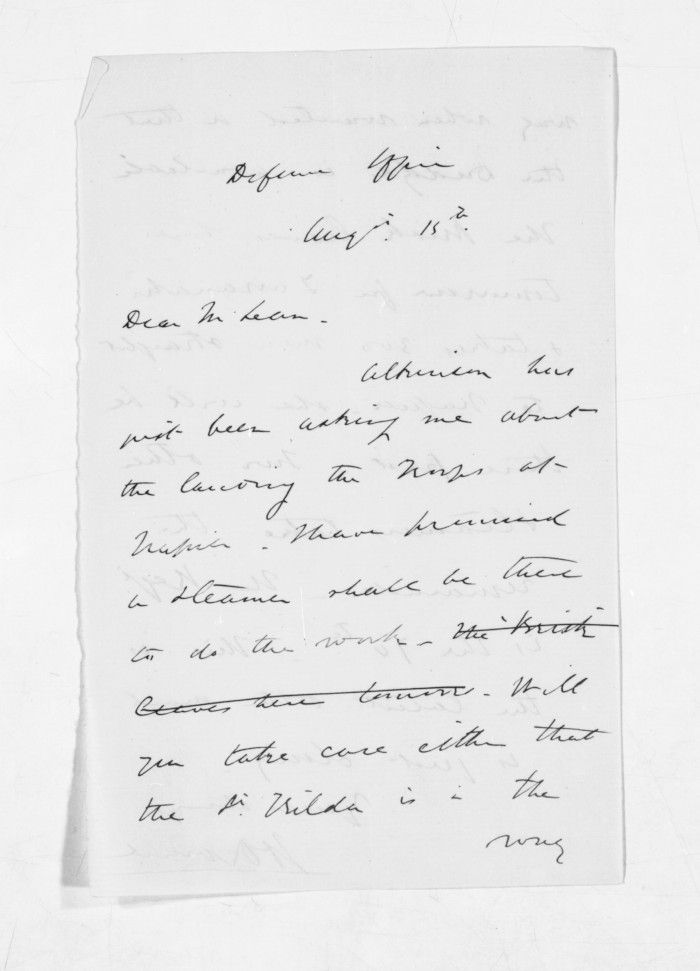 Defence Office
Augt. 15th.
Dear McLean -
Atkinson has
just been asking me about
the landing the troops at
Napier - I have promised
a steamer shall be there
to do the work - the "Brisk"
leaves here tomorrow - Will
you take care either that
the St. Kilda is in the
way